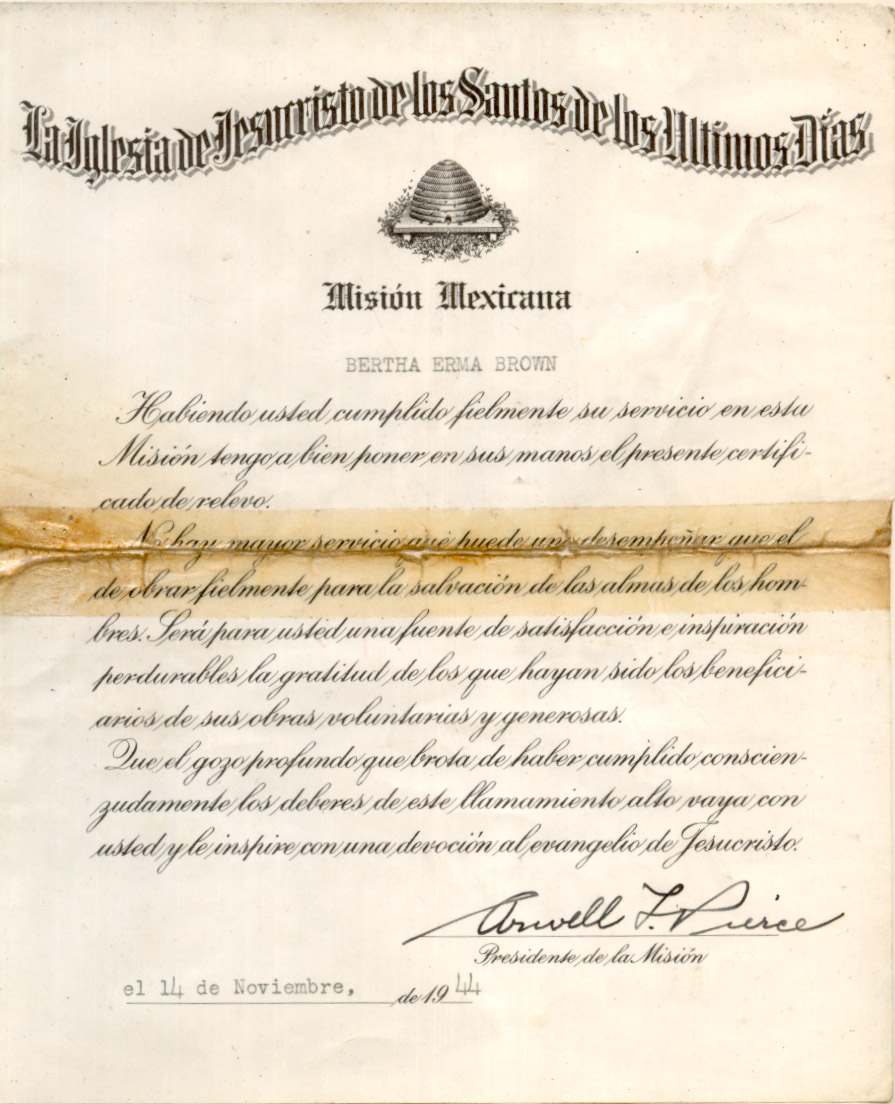 La Iglesia de Jesucristo de los Santos de los Ultimos Días
Misión Mexicana
BERTHA ERMA BROWN
Habiendo usted cumplido fielmente su servicio en esta
Misión tengo a bien poner en sus manos el presente certifi-
cado de relevo.
No hay mayor servicio que puede uno desempeñar que el
de obrar fielmente para la salvación de las almas de los hom-
bres. Será para usted una fuente de satisfacción e inspiración
perdurables la gratitud de los que hayan sido los benefici-
arios de sus obras voluntarias y generosas.
Que el gozo profundo que brota de haber cumplido conscien-
zudamente los deberes de este llamamiento alto vaya con
usted y le inspire con una devoción al evangelio de Jesucristo.
Arwell L. Pierce
Presidente de la Misión
el 14 de Noviembre, de 1944